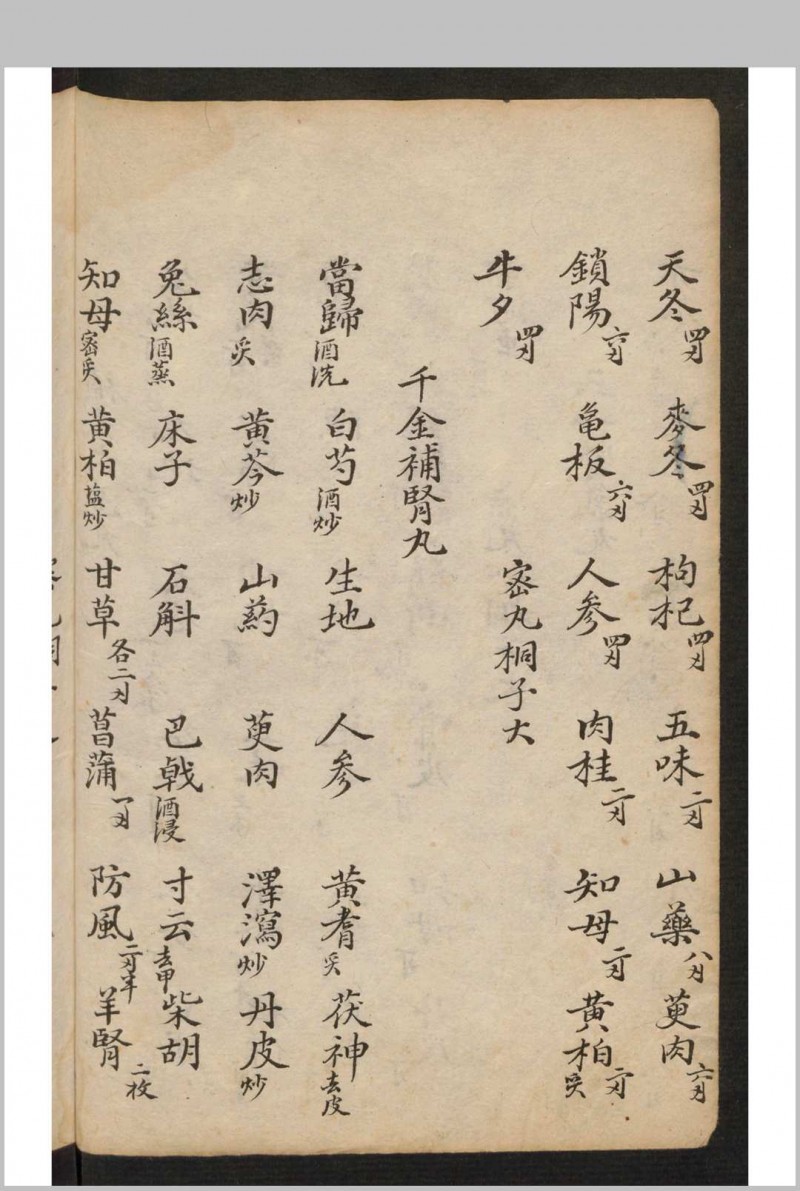 天冬四刄 麥冬四刄 枸杞四刄 五味二刄 山藥八刄 萸肉六刄
鎖陽六刄 亀板六刄 人參四刄 肉桂二刄 知母二刄 黄柏炙二刄
牛夕四刄 密丸桐子大
千金補腎丸
當歸酒洗 白芍酒炒 生地 人參 黄耆炙 茯神去皮
志肉炙 黄芩炒 山药 萸肉 澤瀉炒 丹皮炒
兔絲酒蒸 床子 石斛 巴戟酒浸 寸云去甲 柴胡
知母密炙 黄柏盐炒 甘草各二刄 菖蒲一刄 防風二刄半 羊腎二枚